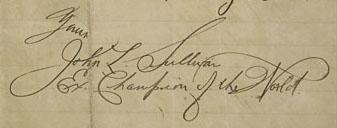 Yours
John L. Sullivan
Ex. Champion of the World.